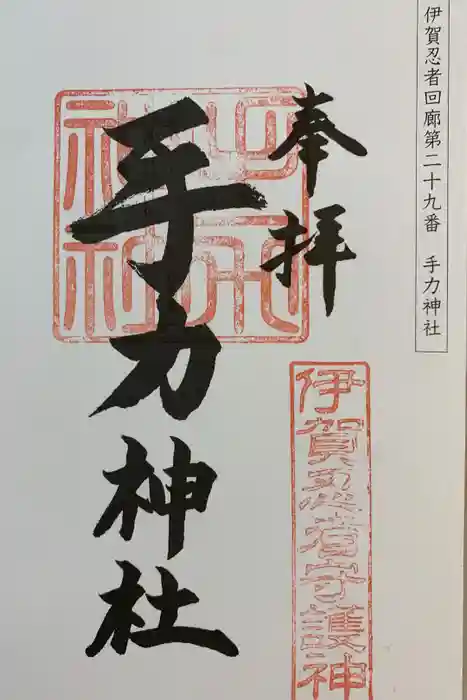 伊賀忍者回廊第二十九番　手力神社
奉拝
手力神社
伊賀忍者守護神